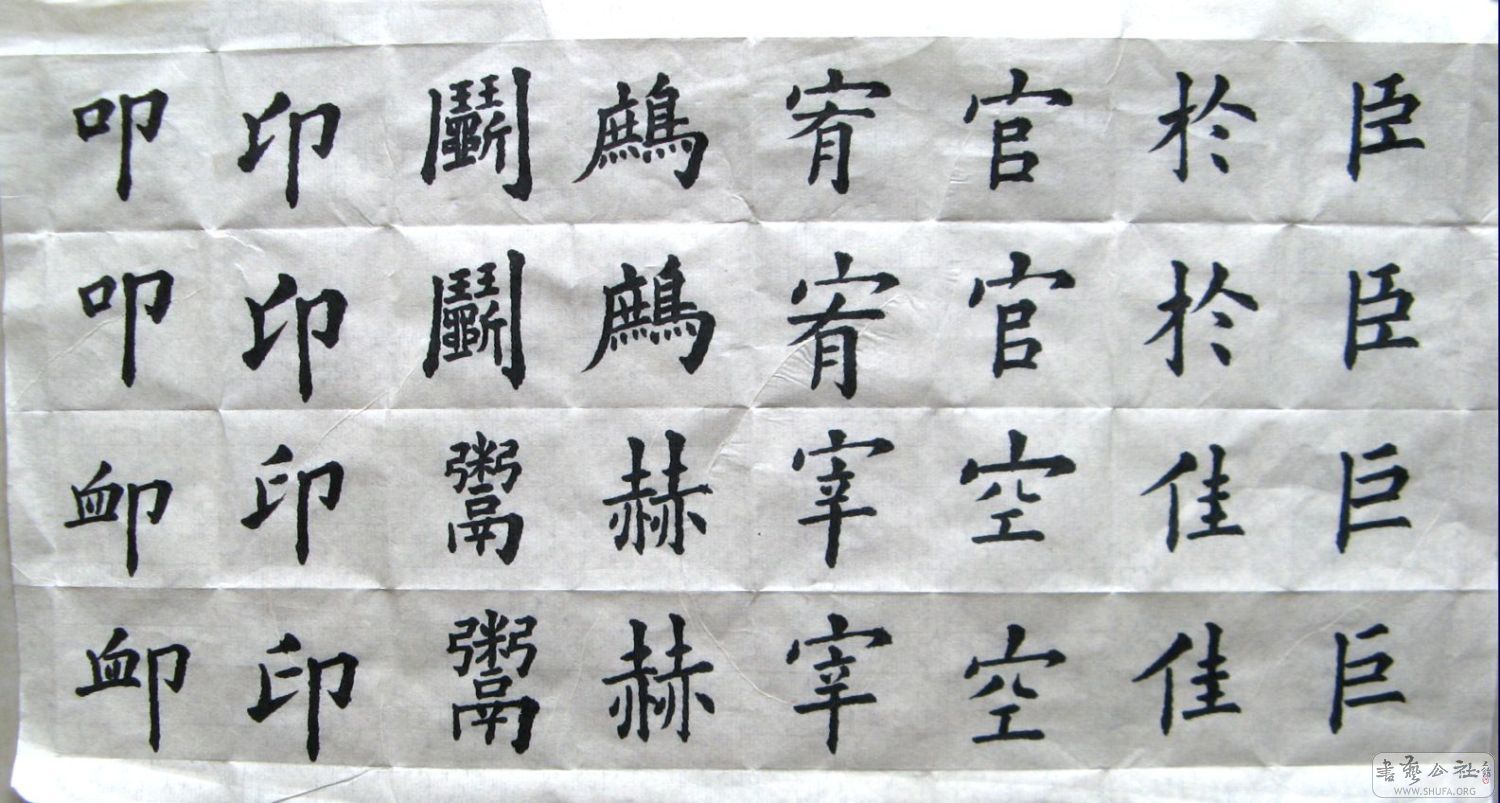 臣臣巨巨
於於佳佳
官官空空
宥宥宰宰
鷓鷓赫赫
鬬鬬鬻鬻
印印印印
叩叩卹卹
書藝公社
WWW.SHUFA.ORG